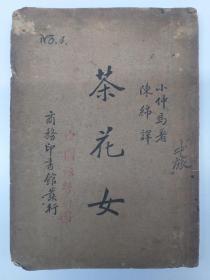 NO. 3.
小仲馬著
陳綿譯
茶花女
商務印書館發行